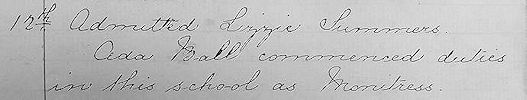 12th Admitted Lizzie Summers.
Ada Ball commenced duties
in this school as Monitress.